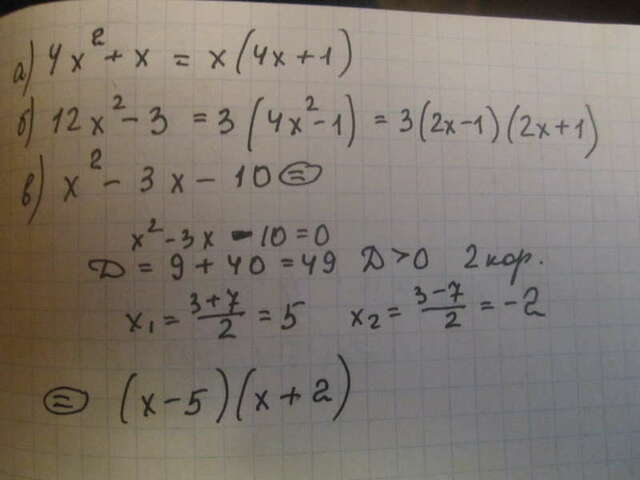 а) 4x² + x = x(4x+1)
б) 12x² - 3 = 3(4x² - 1) = 3(2x-1)(2x+1)
в) x² - 3x - 10 ⊜
x² - 3x - 10 = 0
D = 9 + 40 = 49 D > 0 2 кор.
x₁ = (3+7)/2 = 5 x₂ = (3-7)/2 = -2
⊜ (x-5)(x+2)